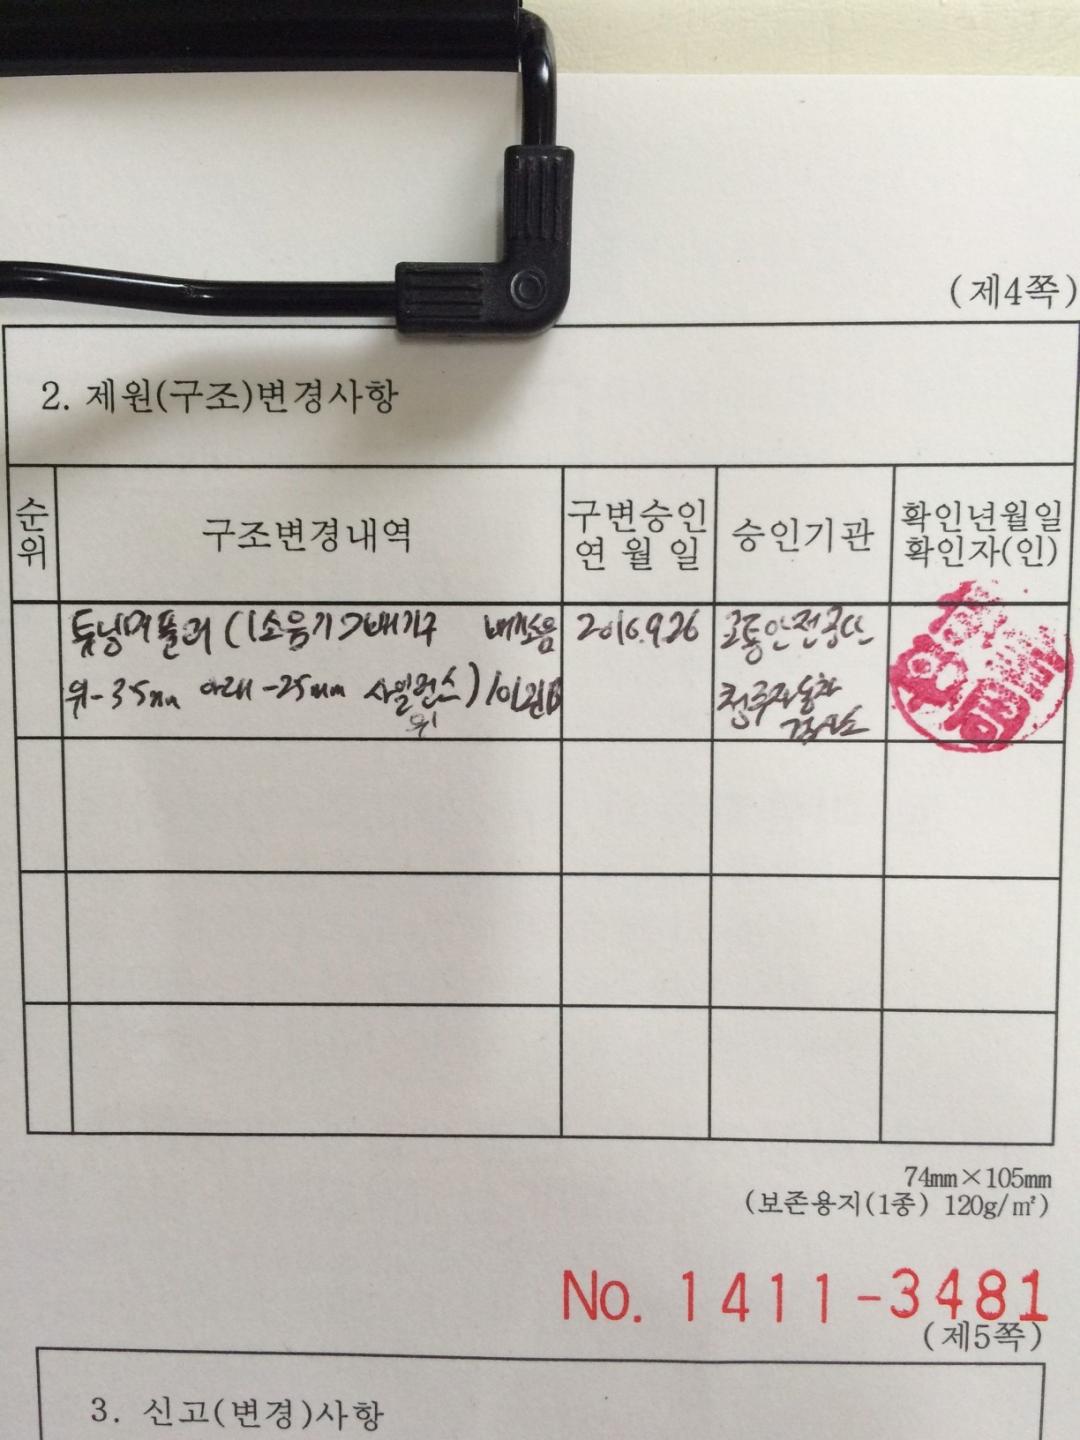 (제4쪽)
2. 제원(구조)변경사항
순위
구조변경내역
구변승인
연 월 일
승인기관
확인년월일
확인자(인)
튜닝머플러 (1소음기>배기구 배기소음
위-35mm 아래-25mm 사일런스)
위
2016.9.26
교통안전공단
청주자동차
검사소
74mm×105mm
(보존용지(1종) 120g/㎡)
No. 1411-3481
(제5쪽)
3. 신고(변경)사항